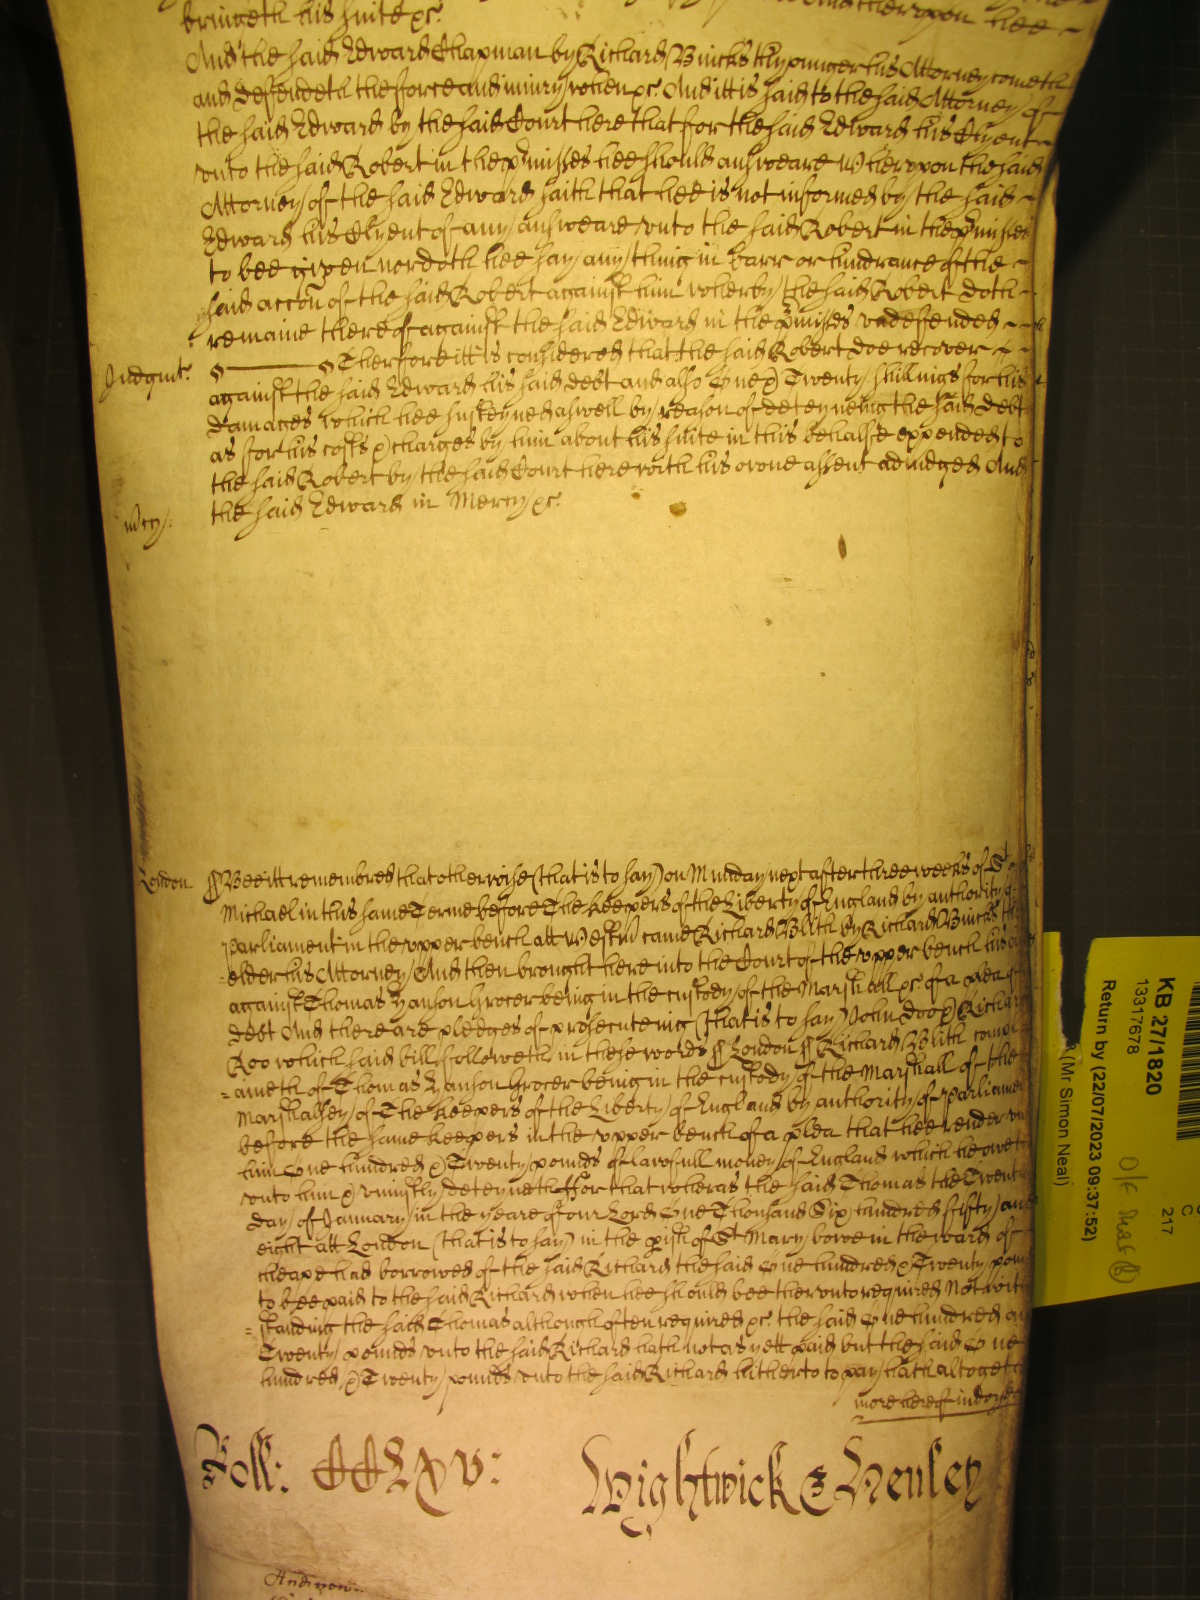 bringeth his suite &c. And therupon hee
And the said Edward Chapman by Richard Buicks the younger his Attorney cometh
and deffendeth the force and iniury when &c. And itt is said to the said Attorney of
the said Edward by the said Court here that for the said Edward his Clyent
vnto the said Robert in the p'misses hee should answeare Wherupon the said
Attorney of the said Edward saith that hee is not informed by the said
Edward his Clyent of any answeare vnto the said Robert in the p'misses
to bee given nor doth hee say any thing in barr or hindrance of the
said accon of the said Robert against him wherby the said Robert doth
remaine therof against the said Edward in the p'misses vndefended
Judgmt. Therfore itt is considered that the said Robert doe recover
against the said Edward his said debt and also One & Twenty shillings for his
damages which hee susteyned aswell by reason of deteyneing the said debt
as for his costs & charges by him about his suite in this behalfe expended to
the said Robert by the said Court here with his owne assent adiudged And
mercy: the said Edward in Mercy &c.
London Bee itt remembred that otherwise (that is to say) on Munday next after three weeks of St
Michael in this same Terme before The Keepers of the Liberty of England by authority of
Parliament in the vpper bench att Westm' came Richard Blith by Richard Buicks the
elder his Attorney And then brought here into the Court of the vpper bench his
against Thomas Hanson Grocer being in the custody of the Marshall &c. of a plea of
debt And there are pledges of prosecuteing (that is to say) John Doo & Richard
Roo which said bill followeth in these words London Richard Blith compl
aineth of Thomas Hanson Grocer being in the custody of the Marshall of the
Marshallsey of The Keepers of the Liberty of England by authority of Parliament
before the same Keepers in the vpper bench of a plea that hee render vnto
him One hundred & Twenty pounds of lawfull money of England which he oweth
vnto him & uniustly deteyneth For that wheras the said Thomas the Twent
day of January in the yeare of our Lord One Thousand Six hundred fifty and
eight att London (that is to say) in the p'ish of St Mary bowe in the ward of
cheape had borrowed of the said Richard the said One hundred & Twenty pounds
to bee paid to the said Richard when hee should bee thervnto required Notwith
standing the said Thomas although often required &c. the said One hundred and
Twenty pounds vnto the said Richard hath not as yett paid but the said One
hundred & Twenty pounds vnto the said Richard hitherto to pay hath altogether
more hereof indorsed
Roll: CCLXV: Wightwick & Henley
And now
KB 27/1820
13317678
C
217
Return by (22/07/2023 09:37:52)
(Mr Simon Neal)